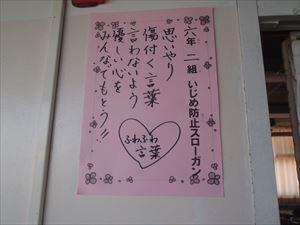 六年 二組 いじめ防止スローガン
思いやり
傷付く言葉
言わないよう
優しい心を
みんなでもとう!!
ふわふわ
言葉